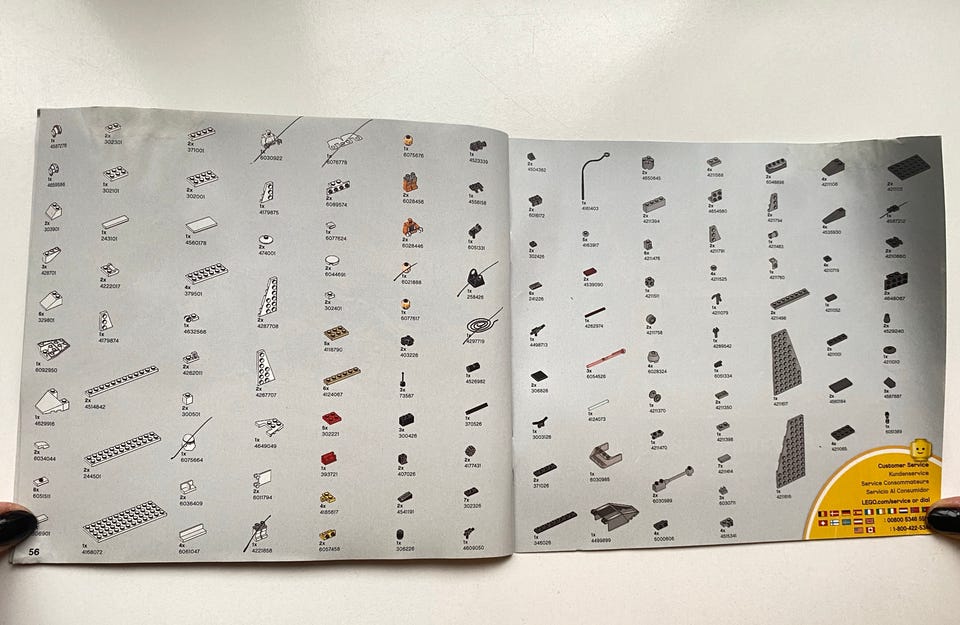 1x
4587276
2x
302301
2x
371001
6030922
6076778
1x
6075676
1x
4523339
1x
4659586
1x
302101
2x
302001
1x
4179875
2x
6089574
2x
6028456
1x
4558158
2x
303901
1x
243101
1x
4560178
2x
474001
1x
6077624
2x
6028446
1x
6051331
2x
428701
2x
4222017
2x
379501
2x
4287708
2x
6044691
1x
6021888
1x
258426
6x
329801
1x
4179874
1x
4632566
1x
302401
1x
6077617
1x
4297719
1x
6092950
2x
4514842
2x
4262011
2x
4287707
5x
4118790
2x
403226
1x
4526982
1x
4629916
2x
300501
6x
4124067
1x
73587
1x
370526
2x
6034044
2x
244501
1x
6075664
1x
4649049
5x
302221
3x
300426
2x
417431
6x
6051511
2x
6036409
2x
6011794
1x
393721
2x
407026
1x
302326
4x
6061047
4x
4185617
2x
4541191
1x
4168072
1x
4221858
2x
6057458
1x
306226
1x
4609050
56
2x
4504382
1x
4161403
2x
4650645
1x
4221588
3x
6046898
4x
4211106
2x
2x
6016172
2x
4211394
2x
4654580
2x
4535930
1x
4x
302426
5x
4163917
1x
4211476
2x
4211791
1x
4211483
2x
4210660
6x
241226
2x
4539090
1x
4211511
4x
4211525
1x
4211760
4x
4210719
2x
4648067
1x
4498713
1x
4282974
2x
4211758
1x
4211079
2x
4211498
1x
4211052
2x
4529240
2x
306826
3x
6054526
4x
6028324
1x
4289542
2x
4211001
2x
4211010
1x
3003128
1x
4124073
1x
4211370
1x
6051334
1x
4211617
2x
4210684
3x
4587687
2x
371026
1x
6030985
1x
4211470
2x
4211350
4x
421065
1x
6051389
1x
346026
2x
6030989
1x
4211398
2x
4211414
3x
603071
1x
4211616
1x
4499899
4x
6000606
4x
4515341
Customer Service
Kundenservice
Service Consommateurs
Servicio Al Consumidor
LEGO.com/service or dial
: 00800 5346
: 1-800-422-